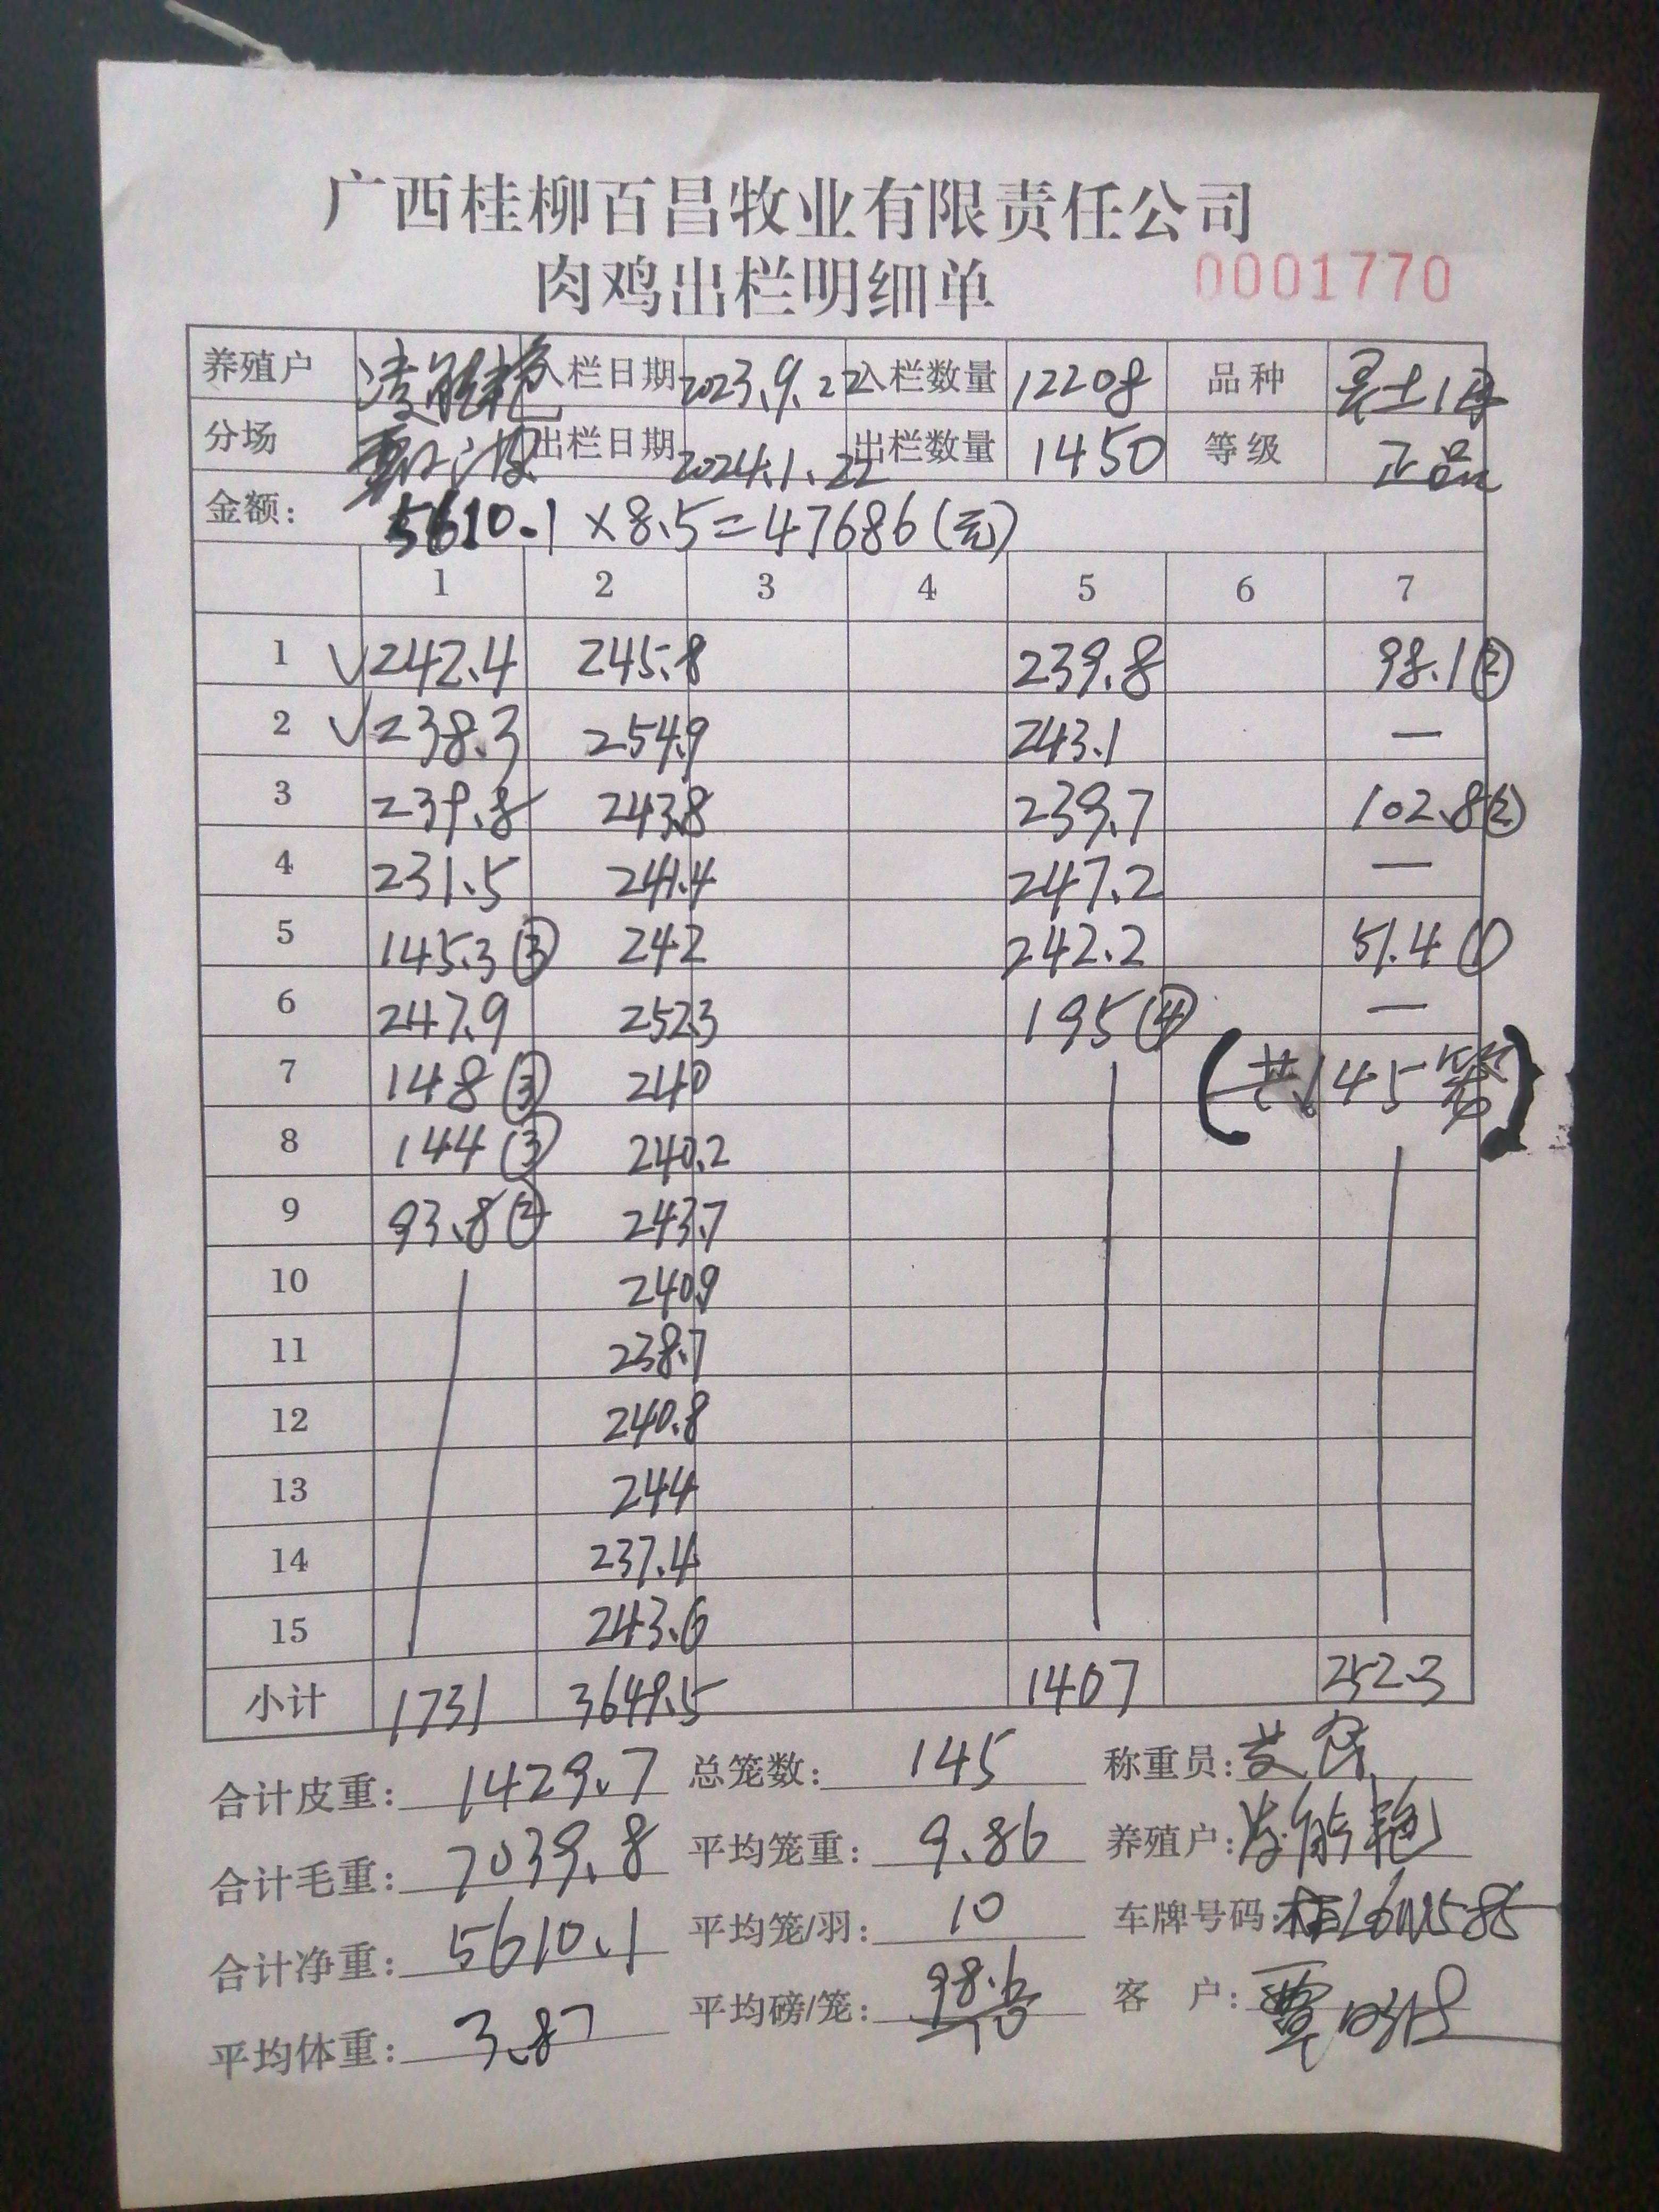 广西桂柳百昌牧业有限责任公司
肉鸡出栏明细单 0001770
养殖户 凌能艳 入栏日期 2023.9.22 入栏数量 12208 品种
分场 出栏日期 2024.1.22 出栏数量 1450 等级 正品
金额: 5610.1×8.5=47686(元)
1 2 3 4 5 6 7
1 √242.4 245.8 239.8 98.1②
2 √238.3 254.9 243.1 —
3 239.8 243.8 239.7 102.8②
4 231.5 241.4 247.2 —
5 145.3③ 242 242.2 51.4①
6 247.9 252.3 195④ —
7 148③ 240 (共145笼)
8 144③ 240.2
9 93.8② 243.7
10 240.9
11 238.7
12 240.8
13 244
14 237.4
15 243.6
小计 1731 3649.5 1407 252.3
合计皮重: 1429.7 总笼数: 145 称重员:
合计毛重: 7039.8 平均笼重: 9.86 养殖户: 凌能艳
合计净重: 5610.1 平均笼/羽: 10 车牌号码:
平均体重: 3.87 平均磅/笼: 98.6/10 客 户: